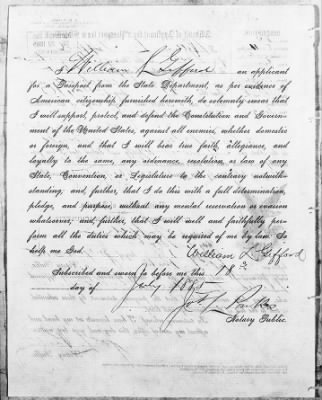 I William L Gifford an applicant
for a Passport from the State Department, as per evidence of
American citizenship furnished herewith, do solemnly swear that
I will support, protect, and defend the Constitution and Govern-
ment of the United States, against all enemies, whether domestic
or foreign, and that I will bear true faith, allegiance, and
loyalty to the same, any ordinance, resolution or law of any
State, Convention, or Legislature to the contrary notwith-
standing, and, further, that I do this with a full determination,
pledge, and purpose, without any mental reservation or evasion
whatsoever, and, further, that I will well and faithfully per-
form all the duties which may be required of me by law. So
help me God.
William L Gifford
Subscribed and sworn to before me this 18
day of July 1865
Notary Public.